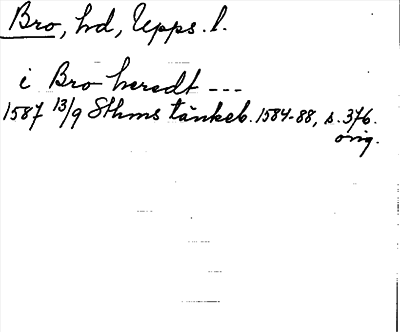 Bro, hd, Upps. l.
i Bro heredt ---
1587 13/9 Sthms tänkeb. 1584-88, s. 376.
orig.